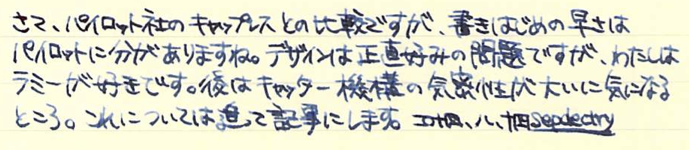 さて、パイロット社のキャップレスとの比較ですが、書きはじめの早さは
パイロットに分がありますね。デザインは正直好みの問題ですが、わたしは
ラミーが好きです。後はキャッター機構の気密性が大いに気になる
ところ。これについては追って記事にします。